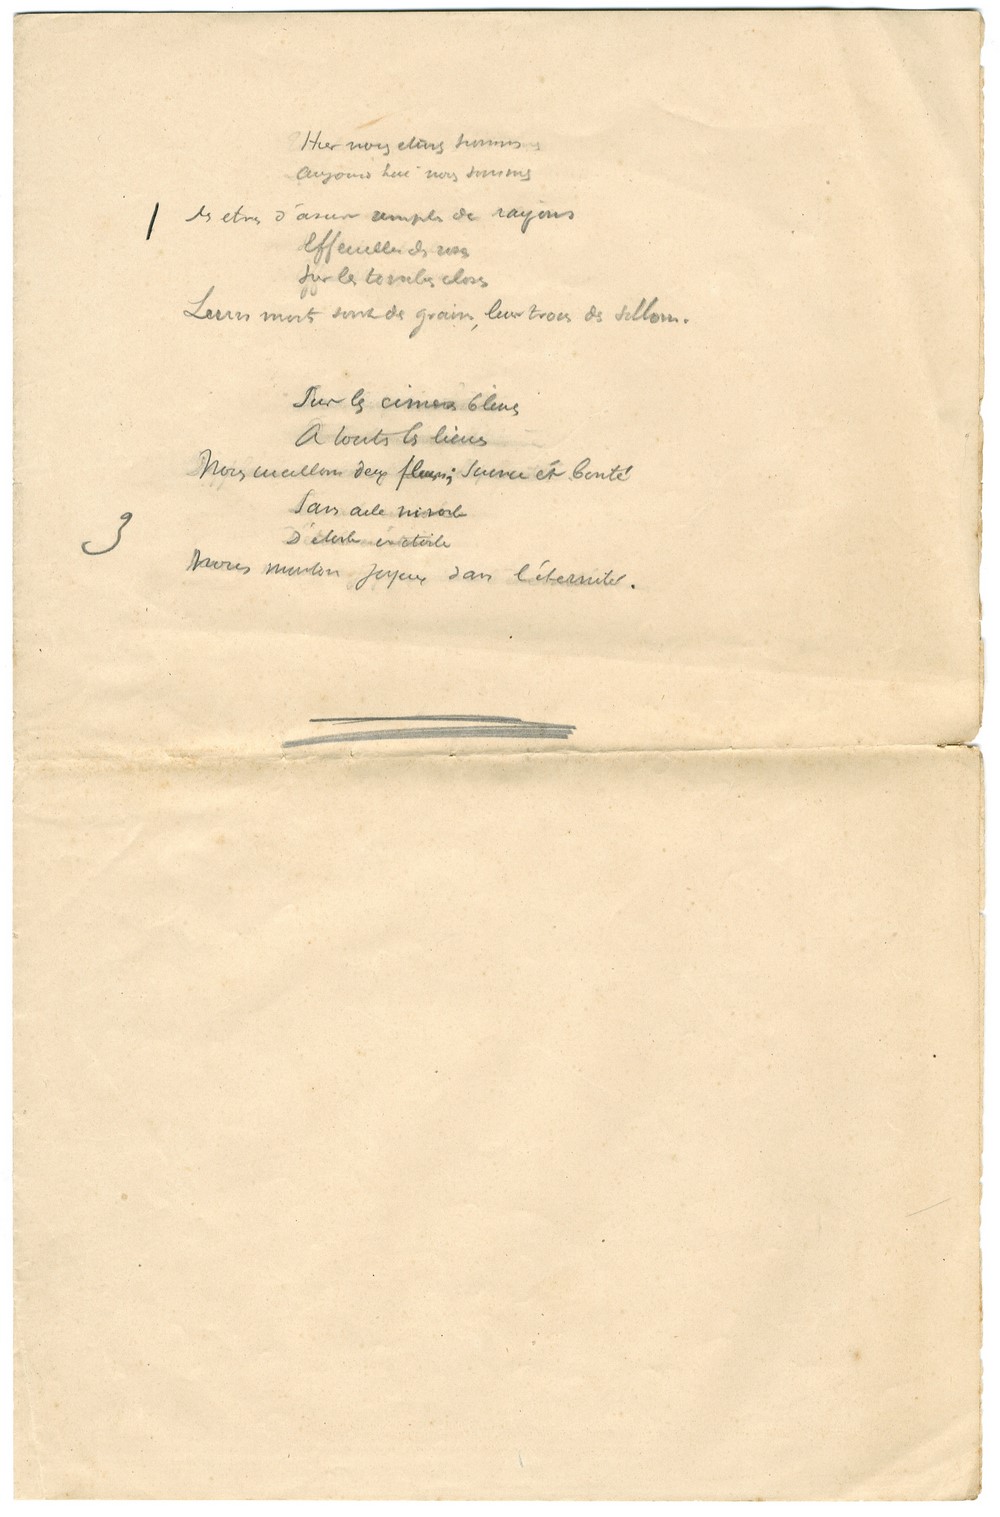 Hier nous etions hommes
Aujourd'hui nous sommes
1 des etres d'azur remplis de rayons
Effeuillez des roses
Sur les tombes closes
Leurs morts sont des grains, leur trous des sillons.
Sur les cimes bleues
A toutes les lieues
Nous cueillons deux fleurs; Science et bonté
Sans aile ni voile
3 D'étoile en étoile
Nous montons joyeux dans l'éternité.